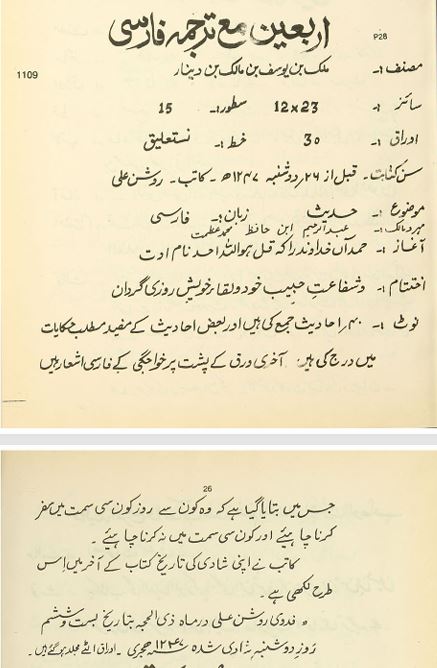 اربعین مع ترجمہ فارسی
P28
1109
مصنف :۔ ملک بن یوسف بن مالک بن دینار
سائز :۔ 12x23 سطور :۔ 15
اوراق :۔ 30 خط :۔ نستعلیق
سن کتابت۔ قبل از ۲۶/ دوشنبہ ۱۲۴۷ھ ۔ کاتب۔ روشن علی
موضوع :۔ حدیث زبان :۔ فارسی
مہر و مالک :۔ عبدالرحیم ابن حافظ محمد عظمت
آغاز :۔ حمد آں خداوند را کہ قل ہو اللہ احد نام اوت
اختتام :۔ و شفاعتِ حبیب خود و لقاء خویش روزی گردان
نوٹ :۔ ۴۰/ احادیث جمع کی ہیں اور بعض احادیث کے مفید مطلب حکایات
میں درج کی ہیں۔ آخری ورق کے پشت پر خواجگی کے فارسی اشعار ہیں
26
جس میں بتایا گیا ہے کہ وہ کون سے روز کون سی سمت میں سفر
کرنا چاہیئے اور کون سی سمت میں نہ کرنا چاہیئے ۔
کاتب نے اپنی شادی کی تاریخ کتاب کے آخر میں اس
طرح لکھی ہے ۔
فدوی روشن علی در ماہ ذی الحجہ بتاریخ بست و ششم
روز دوشنبہ شادی شدہ ۱۲۴۷ ہجری ۔ اوراق الٹے مجلد ہو گئے ہیں